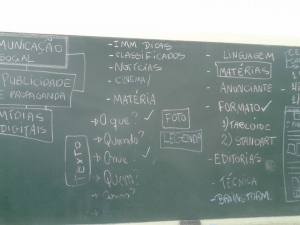 MUNICAÇÃO
SOCIAL
PUBLICIDADE
E PROPAGANDA
MÍDIAS
DIGITAIS
- IMM DICAS
- CLASSIFICADOS
- NOTÍCIAS
- CINEMA/
- MATÉRIA
→ O que? ✓
→ Quando?
→ Onde ✓
→ Quem?
→ Como?
TEXTO
FOTO
LEGENDA
- LINGUAGEM
- MATÉRIAS
- ANUNCIANTE
- FORMATO ✓
1) TABLOIDE
2) STANDART
- EDITORIAS
- TÉCNICA
- BRAINSTORM